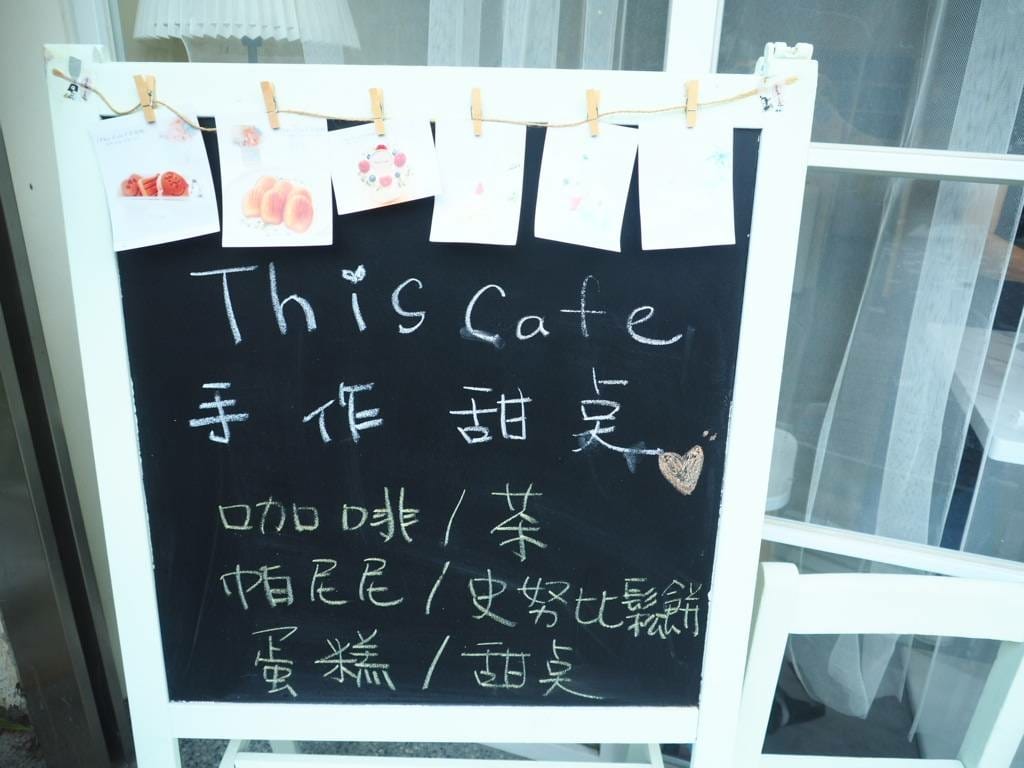 This Cafe
手作甜点
咖啡/茶
帕尼尼/史努比鬆餅
蛋糕/甜点